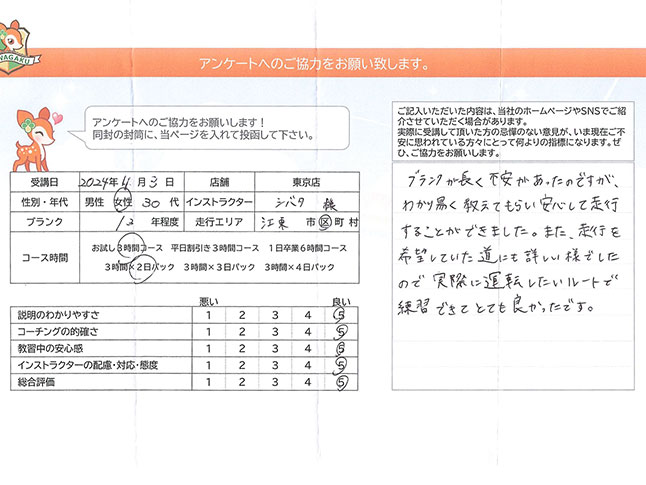 WAGAKU
アンケートへのご協力をお願い致します。
アンケートへのご協力をお願いします!
同封の封筒に、当ページを入れて投函して下さい。
ご記入いただいた内容は、当社のホームページやSNSでご紹
介させていただく場合があります。
実際に受講して頂いた方の忌憚のない意見が、いま現在ご不
安に思われている方々にとって何よりの指標になります。ぜ
ひ、ご協力をお願いします。
受講日 2024年4月3日 店舗 東京店
性別・年代 男性 女性 30代 インストラクター シバタ 様
ブランク 12 年程度 走行エリア 江東 市区町村
コース時間 お試し3時間コース 平日割引き3時間コース 1日卒業6時間コース
3時間×2日パック 3時間×3日パック 3時間×4日パック
悪い 良い
説明のわかりやすさ 1 2 3 4 5
コーチングの的確さ 1 2 3 4 5
教習中の安心感 1 2 3 4 5
インストラクターの配慮・対応・態度 1 2 3 4 5
総合評価 1 2 3 4 5
ブランクが長く不安があったのですが、
わかり易く教えてもらい安心して走行
することができました。また、走行を
希望していた道にも詳しい様でした
ので実際に運転したいルートで
練習できてとても良かったです。